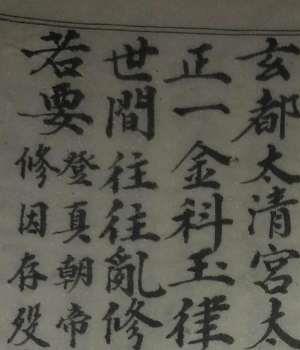 玄都太清宮太
正一金科玉律
世間往往亂修
若要
登真朝帝
修因存歿